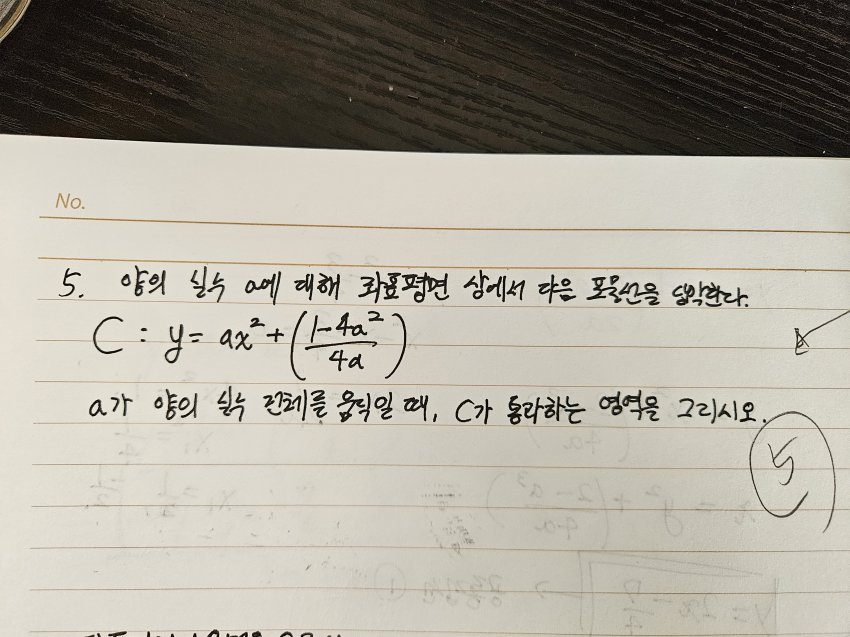 No.
5. 양의 실수 a에 대해 좌표평면 상에서 다음 포물선을 생각한다.
C : y = ax² + (\frac{1-4a²}{4a})
a가 양의 실수 전체를 움직일 때, C가 통과하는 영역을 그리시오.
5